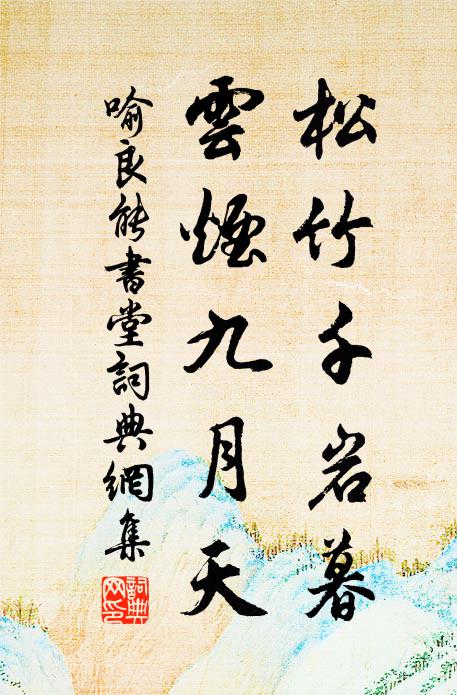 松竹千岩暮
雲煙九月天
喻良能書堂詞典網集
詞典網印